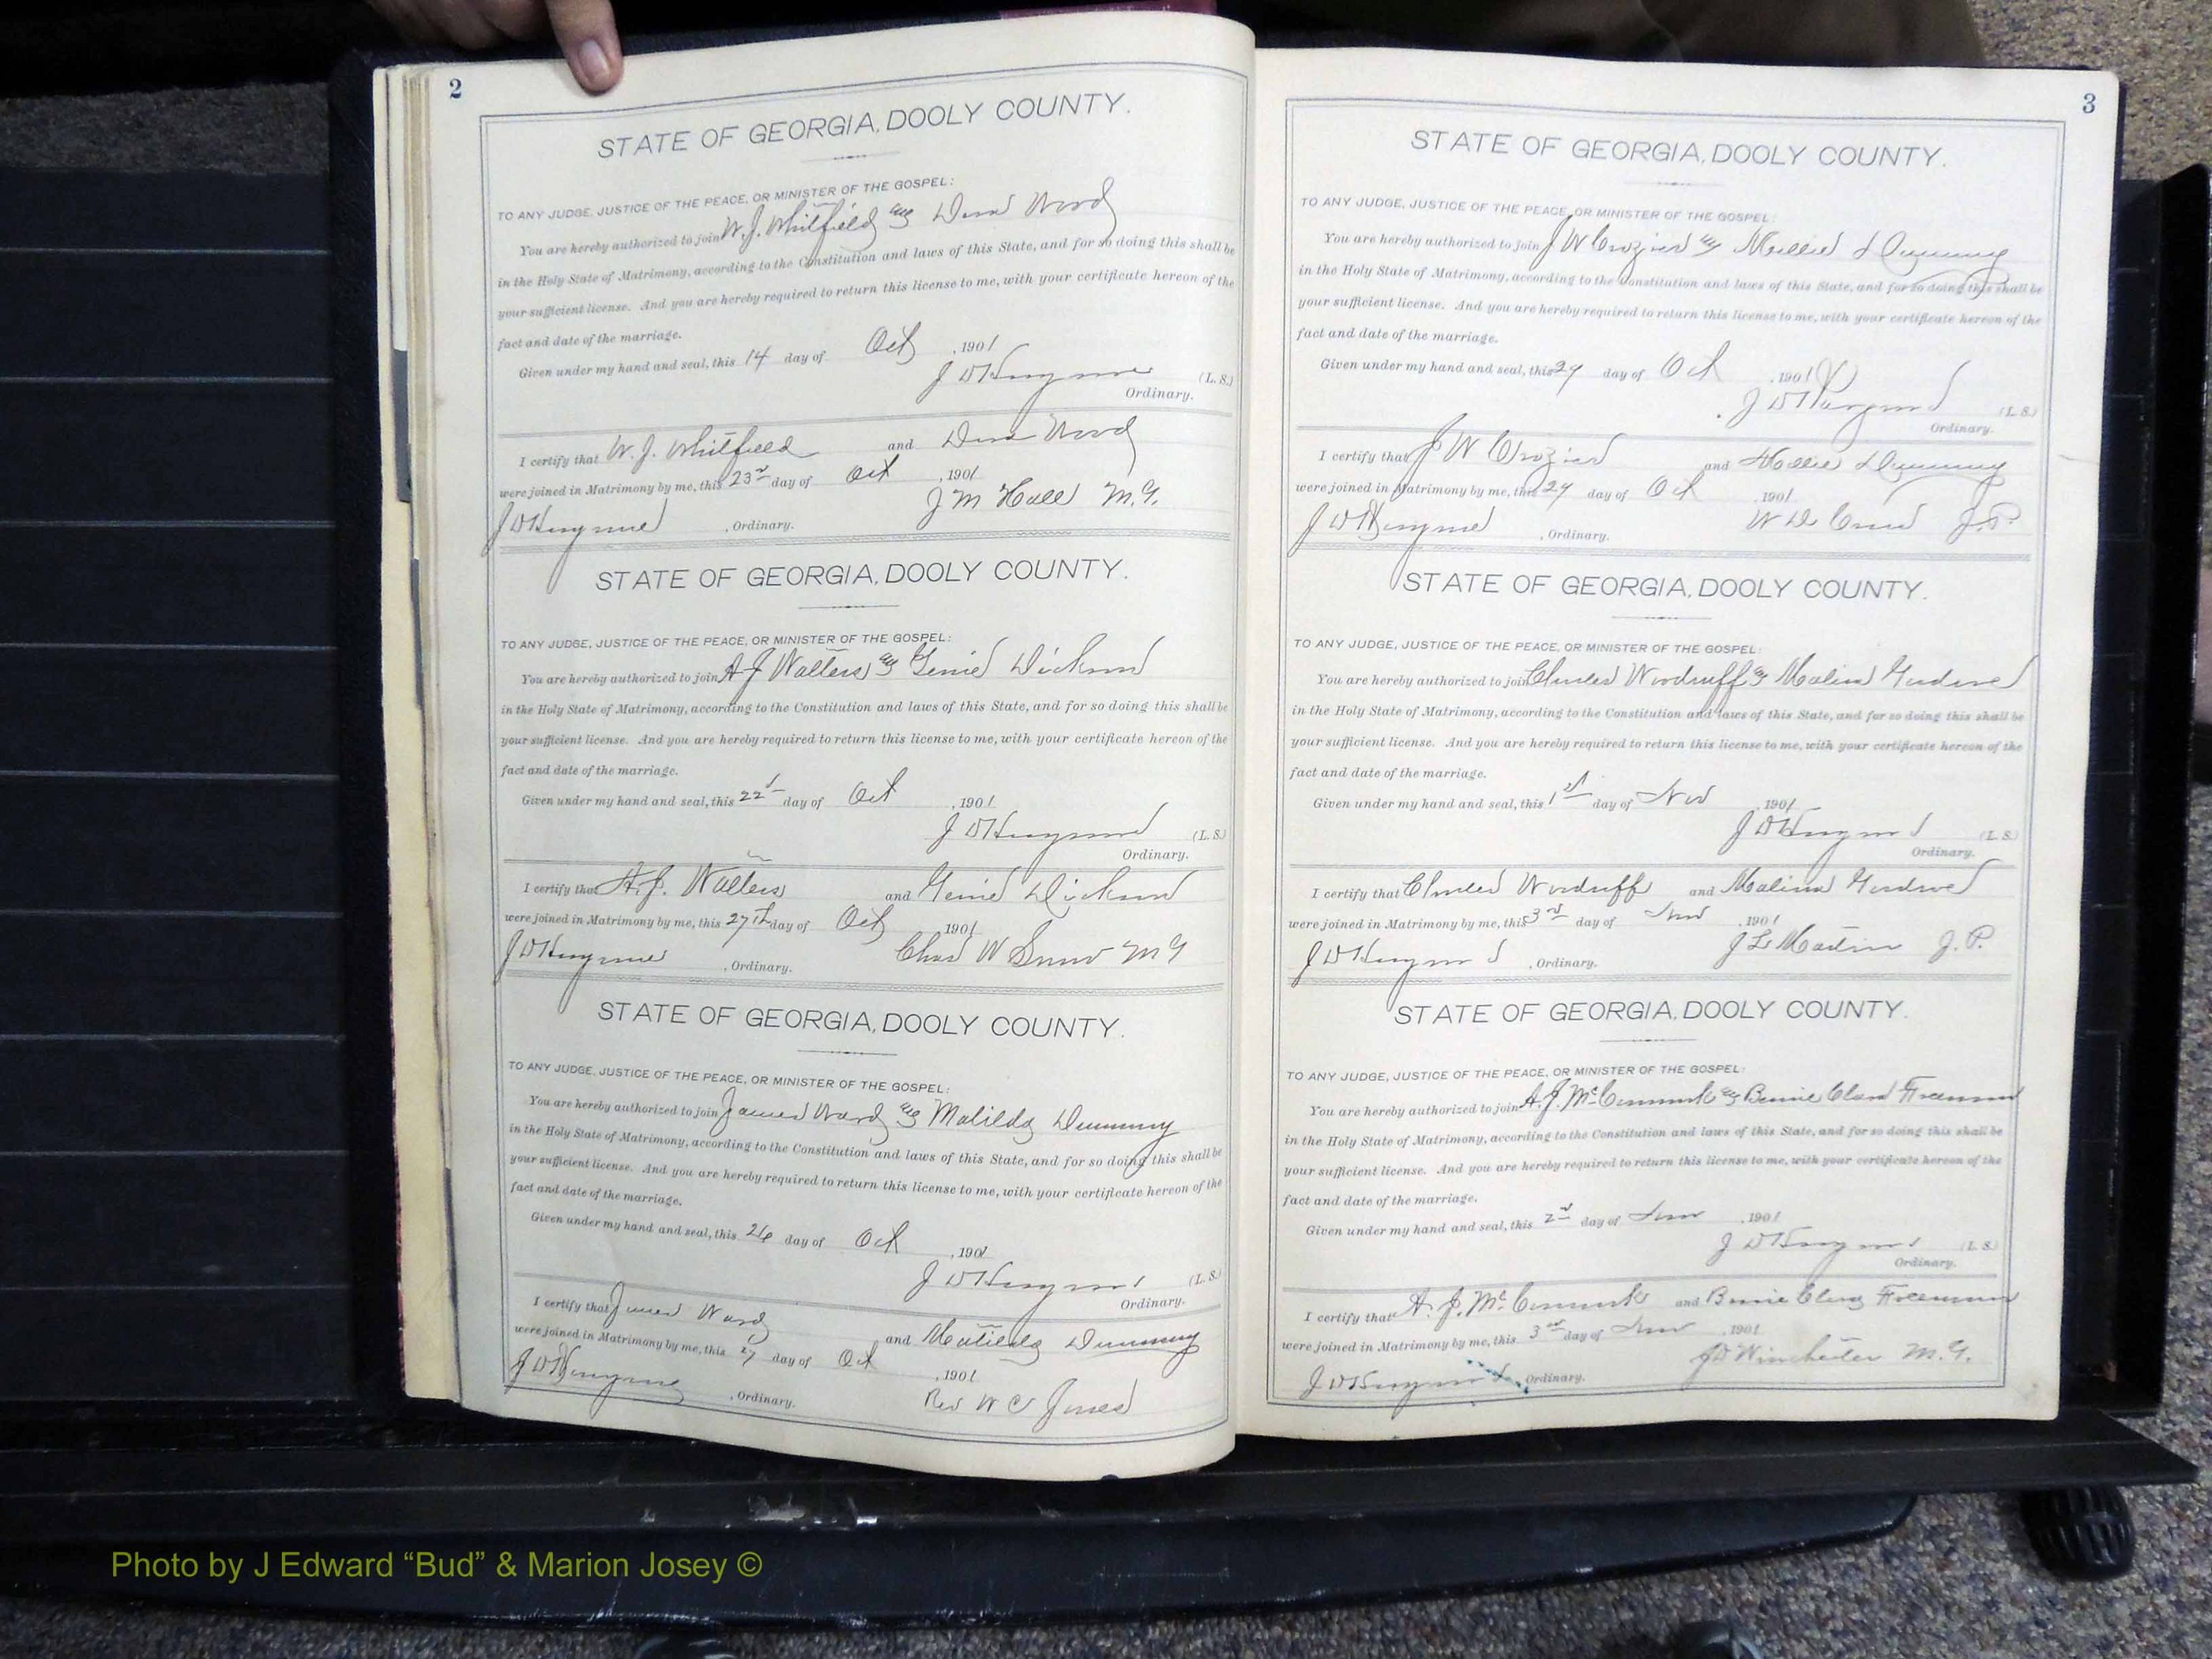 2
STATE OF GEORGIA, DOOLY COUNTY.
TO ANY JUDGE, JUSTICE OF THE PEACE, OR MINISTER OF THE GOSPEL:
You are hereby authorized to join W. J. Whitfield Wood
in the Holy State of Matrimony, according to the Constitution and laws of this State, and for so doing this shall be
your sufficient license. And you are hereby required to return this license to me, with your certificate hereon of the
fact and date of the marriage.
Given under my hand and seal, this 14 day of Oct , 1901
J D (L. S.)
Ordinary.
I certify that W. J. Whitfield and Wood
were joined in Matrimony by me, this 23rd day of Oct , 1901
J M Hall M. G.
J D , Ordinary.
STATE OF GEORGIA, DOOLY COUNTY.
TO ANY JUDGE, JUSTICE OF THE PEACE, OR MINISTER OF THE GOSPEL:
You are hereby authorized to join A J Walters
in the Holy State of Matrimony, according to the Constitution and laws of this State, and for so doing this shall be
your sufficient license. And you are hereby required to return this license to me, with your certificate hereon of the
fact and date of the marriage.
Given under my hand and seal, this 22 day of Oct , 1901
J D (L. S.)
Ordinary.
I certify that A. J. Walters and
were joined in Matrimony by me, this 27th day of Oct , 1901
Chas W M G
J D , Ordinary.
STATE OF GEORGIA, DOOLY COUNTY.
TO ANY JUDGE, JUSTICE OF THE PEACE, OR MINISTER OF THE GOSPEL:
You are hereby authorized to join James Ward Matilda Dummy
in the Holy State of Matrimony, according to the Constitution and laws of this State, and for so doing this shall be
your sufficient license. And you are hereby required to return this license to me, with your certificate hereon of the
fact and date of the marriage.
Given under my hand and seal, this 26 day of Oct , 1901
J D (L. S.)
Ordinary.
I certify that James Ward and Matilda Dummy
were joined in Matrimony by me, this 27 day of Oct , 1901
Rev W C Jones
J D , Ordinary.
3
STATE OF GEORGIA, DOOLY COUNTY.
TO ANY JUDGE, JUSTICE OF THE PEACE, OR MINISTER OF THE GOSPEL:
You are hereby authorized to join J W Crozier Mollie Dummy
in the Holy State of Matrimony, according to the Constitution and laws of this State, and for so doing this shall be
your sufficient license. And you are hereby required to return this license to me, with your certificate hereon of the
fact and date of the marriage.
Given under my hand and seal, this 29 day of Oct , 1901
J D (L. S.)
Ordinary.
I certify that J W Crozier and Mollie Dummy
were joined in Matrimony by me, this 29 day of Oct , 1901
W D J. P.
J D , Ordinary.
STATE OF GEORGIA, DOOLY COUNTY.
TO ANY JUDGE, JUSTICE OF THE PEACE, OR MINISTER OF THE GOSPEL:
You are hereby authorized to join Charles Woodruff Malissa
in the Holy State of Matrimony, according to the Constitution and laws of this State, and for so doing this shall be
your sufficient license. And you are hereby required to return this license to me, with your certificate hereon of the
fact and date of the marriage.
Given under my hand and seal, this 1st day of Nov , 1901
J D (L. S.)
Ordinary.
I certify that Charles Woodruff and Malissa
were joined in Matrimony by me, this 3rd day of Nov , 1901
J L Martin J. P.
J D , Ordinary.
STATE OF GEORGIA, DOOLY COUNTY.
TO ANY JUDGE, JUSTICE OF THE PEACE, OR MINISTER OF THE GOSPEL:
You are hereby authorized to join A. J. McCormick Freeman
in the Holy State of Matrimony, according to the Constitution and laws of this State, and for so doing this shall be
your sufficient license. And you are hereby required to return this license to me, with your certificate hereon of the
fact and date of the marriage.
Given under my hand and seal, this 2nd day of Nov , 1901
J D (L. S.)
Ordinary.
I certify that A. J. McCormick and Freeman
were joined in Matrimony by me, this 3rd day of Nov , 1901
J D Winchester M. G.
J D , Ordinary.
Photo by J Edward “Bud” & Marion Josey ©